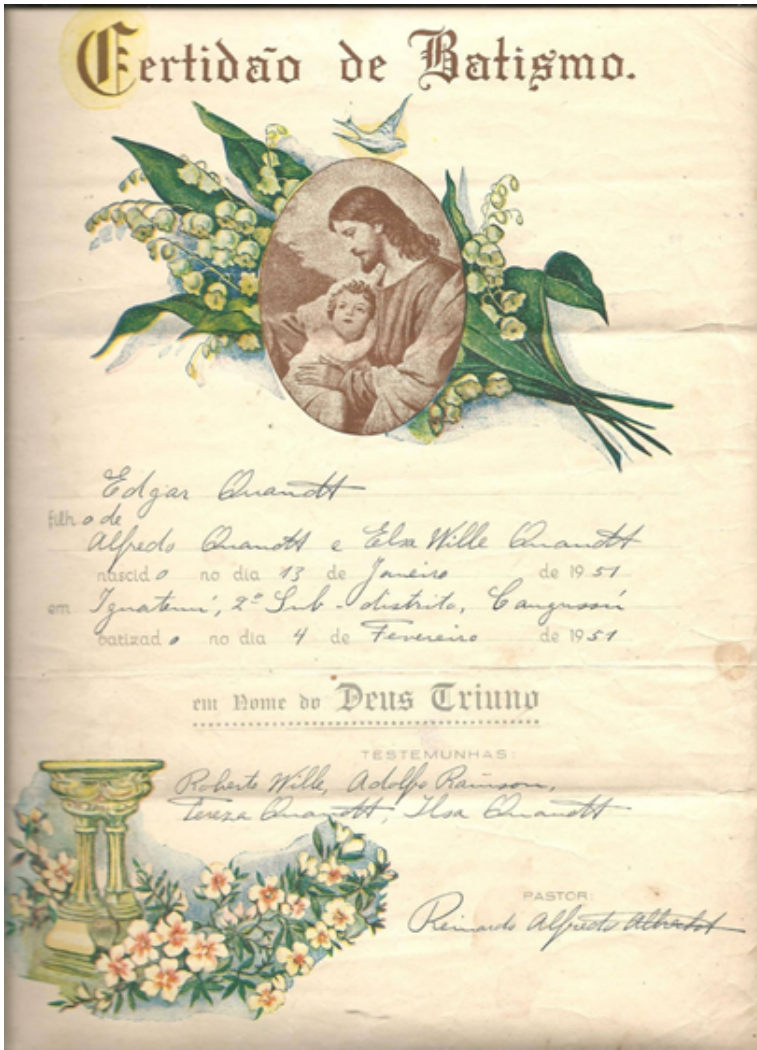 Certidão de Batismo.
Edgar Quandt
filho de
Alfredo Quandt e Elsa Wille Quandt
nascido no dia 13 de Janeiro de 1951
em Iguatemi, 2º Sub-distrito, Cangussú
batizado no dia 4 de Fevereiro de 1951
em Nome do Deus Triuno
TESTEMUNHAS:
Roberto Wille, Adolfo
Tereza Quandt, Ilsa Quandt
PASTOR:
Reinardo Alfredo